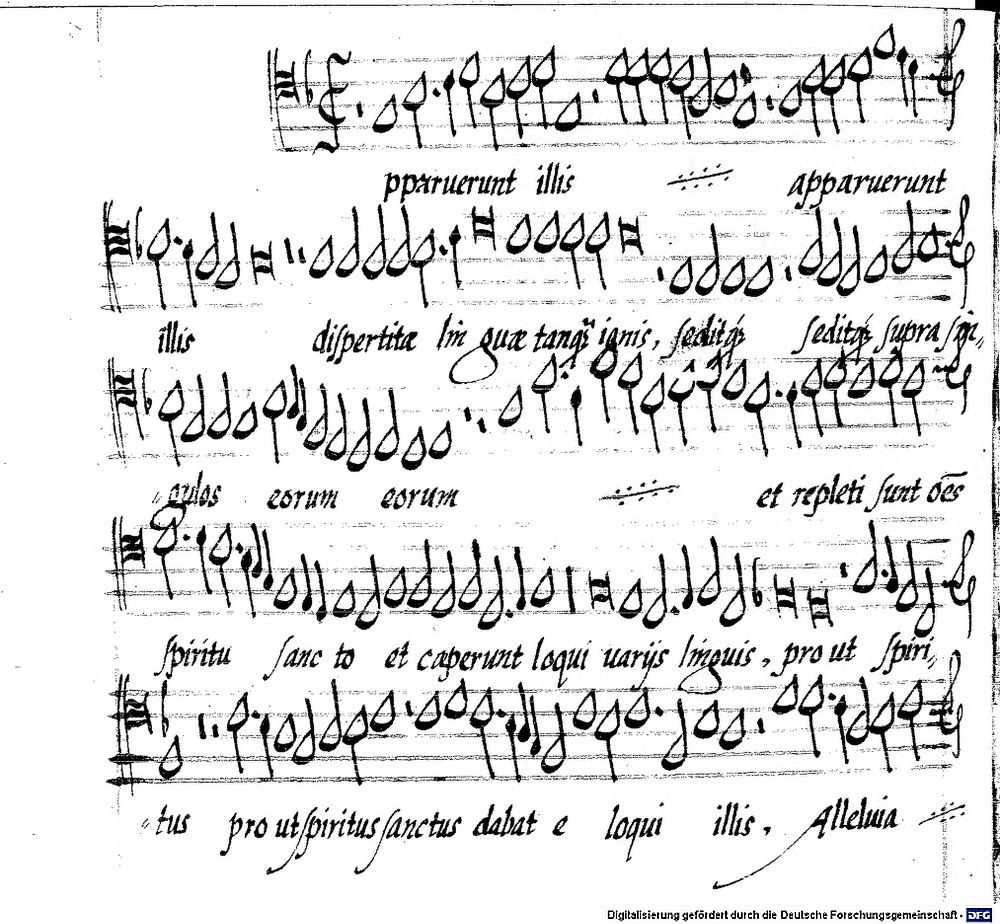 pparuerunt illis apparuerunt
illis dispertitæ lin guæ tanq̃ ignis, seditq́; seditq́; supra sin„
„gulos eorum eorum et repleti sunt oēs
spiritu sanc to et cæperunt loqui uarijs linguis, pro ut spiri„
„tus pro ut spiritus sanctus dabat e loqui illis, Alleluia
Digitalisierung gefördert durch die Deutsche Forschungsgemeinschaft - DFG